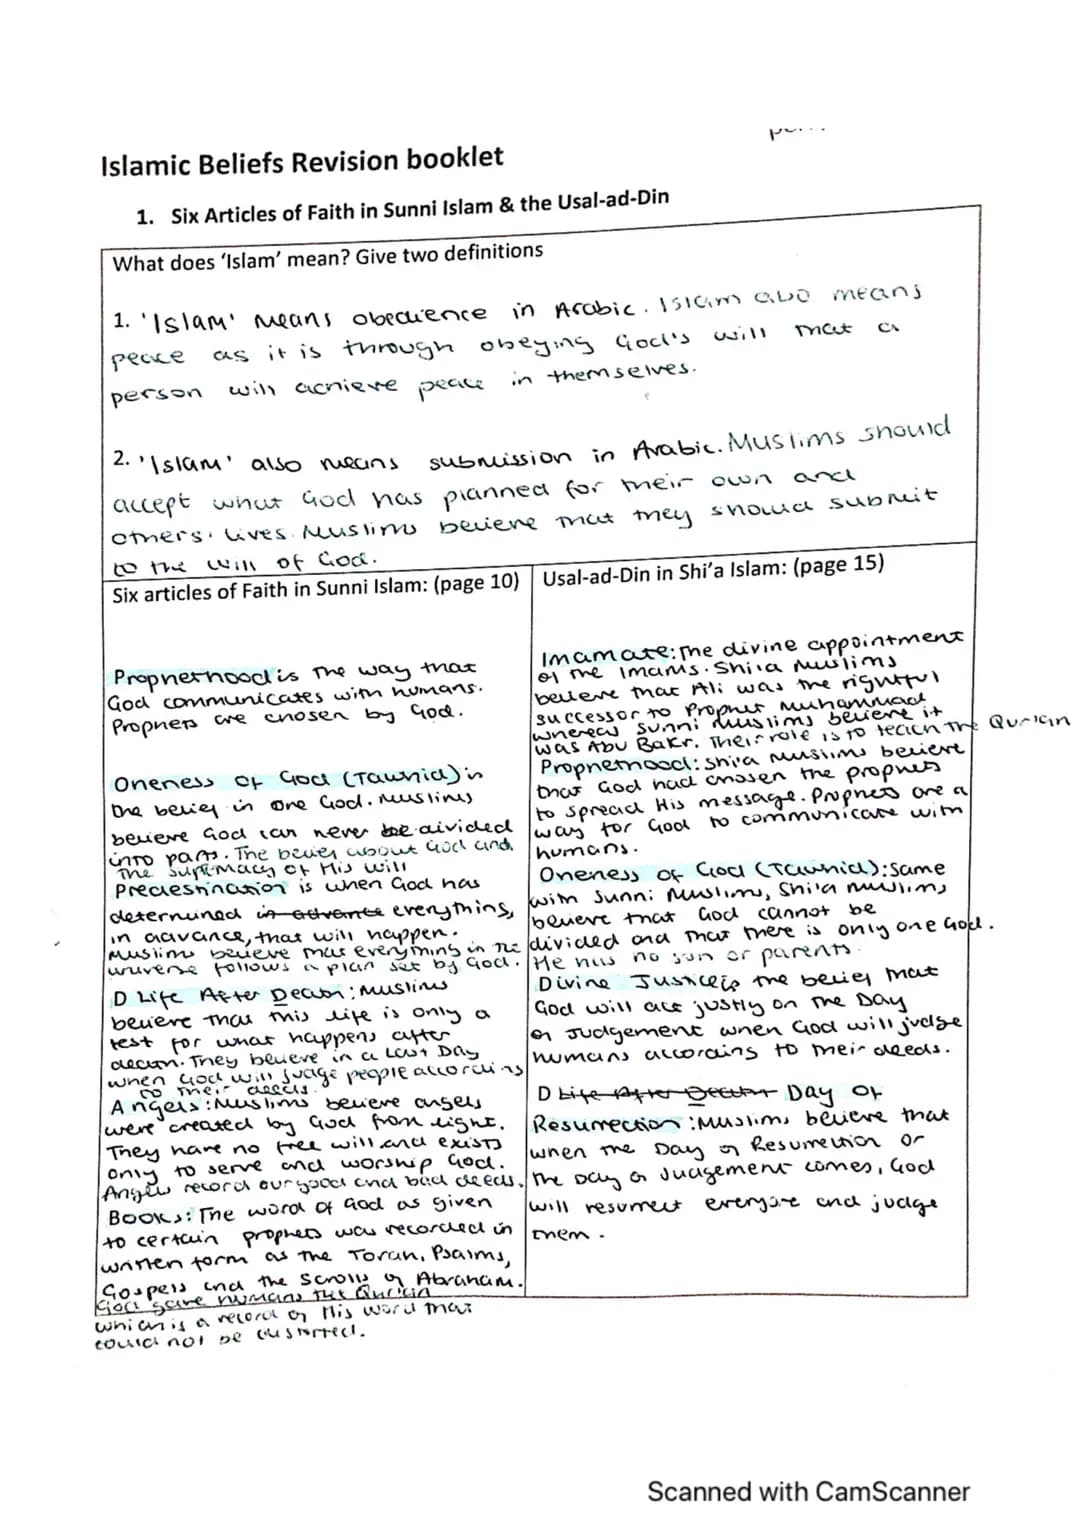 Islamic Beliefs Revision booklet
1. Six Articles of Faith in Sunni Islam & the Usal-ad-Din
What does 'Islam' mean? Give two definitions
1. 'Islam' means obedience in Arabic. Islam also means
peace as it is through obeying God's will that a
person will achieve peace in themselves.
2. 'Islam' also means submission in Arabic. Muslims should
accept what God has planned for their own and
others' lives. Muslims believe that they should submit
to the will of God.
Six articles of Faith in Sunni Islam: (page 10)
Prophethood is the way that
God communicates with humans.
Prophets are chosen by God.
Oneness of God (Tawhid) is
the belief in one God. Muslims
believe God can never be divided
into parts. The belief about God and
the supremacy of His will
Predestination is when God has
determined in advance everything,
in advance, that will happen.
Muslims believe that everything in the
universe follows a plan set by God.
D Life After Death: Muslims
believe that this life is only a
test for what happens after
death. They believe in a Last Day
when God will judge people according
to their deeds.
Angels: Muslims believe angels
were created by God from light.
They have no free will and exists
only to serve and worship God.
Angels record our good and bad deeds.
Books: The word of God as given
to certain prophets was recorded in
written form as the Torah, Psalms,
Gospels and the Scrolls of Abraham.
God gave humans the Qur'an
which is a record of His word that
could not be distorted.
Usal-ad-Din in Shi'a Islam: (page 15)
Imamate: The divine appointment
of the Imams. Shi'a Muslims
believe that Ali was the rightful
successor to Prophet Muhammad
whereas Sunni Muslims believe it
was Abu Bakr. Their role is to teach the Qur'an
Prophethood: Shi'a Muslims believe
that God had chosen the prophets
to spread His message. Prophets are a
way for God to communicate with
humans.
Oneness of God (Tawhid): Same
with Sunni Muslims, Shi'a Muslims
believe that God cannot be
divided and that there is only one God.
He has no son or parents.
Divine Justice is the belief that
God will act justly on the Day
of Judgement when God will judge
humans according to their deeds.
D Life After Death Day of
Resurrection: Muslims believe that
when the Day of Resurrection or
the Day of Judgement comes, God
will resurrect everyone and judge
them.
Scanned with CamScanner